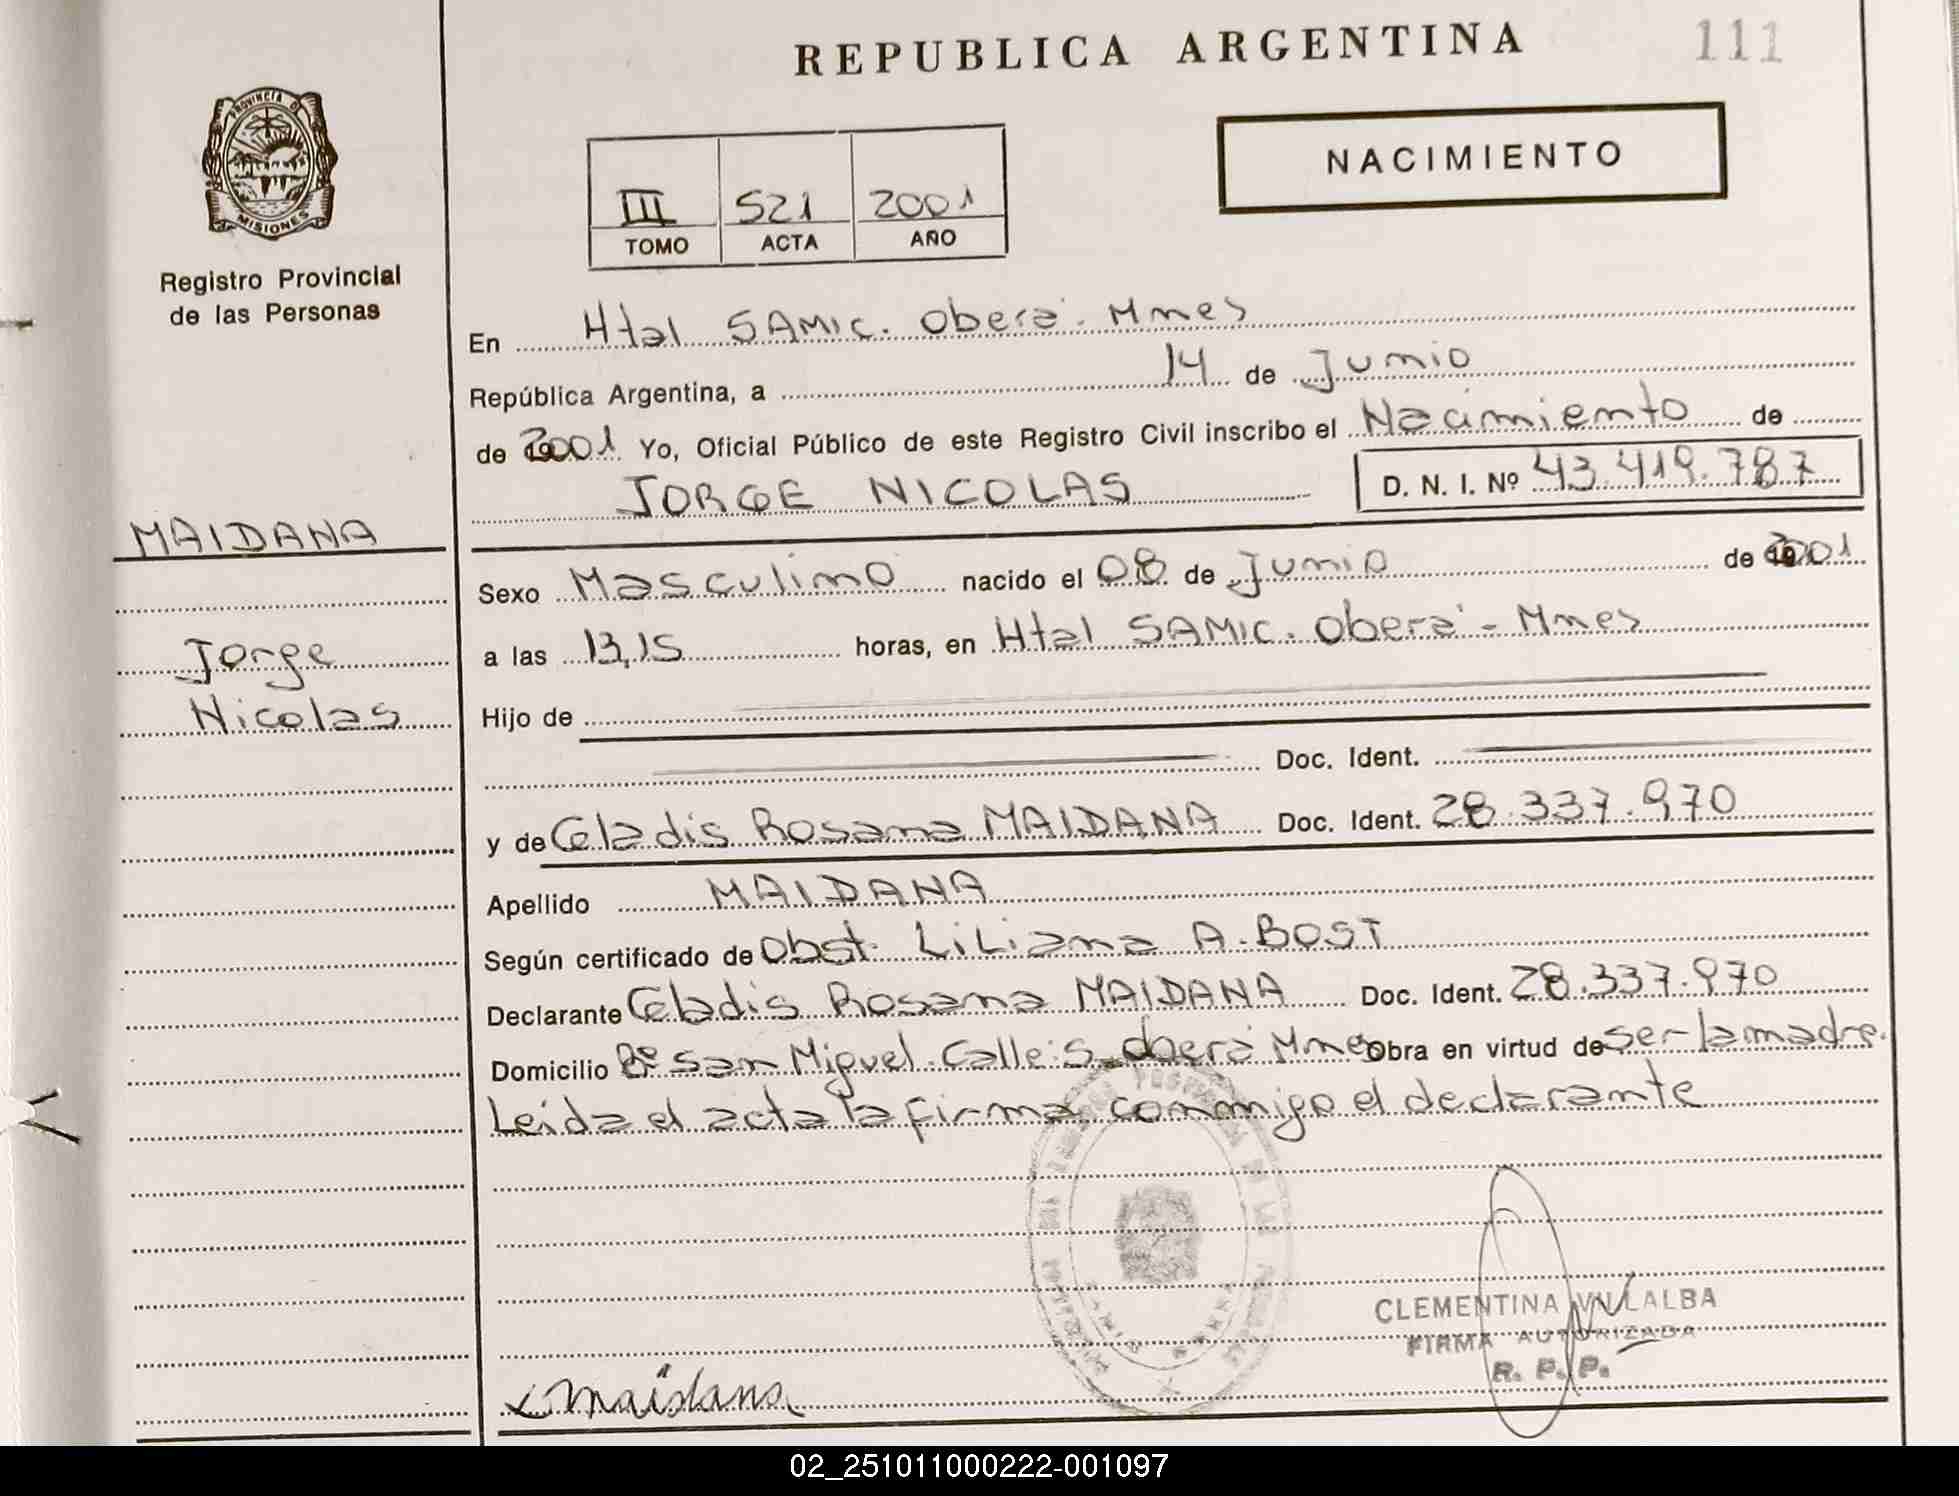 REPUBLICA ARGENTINA
111
PROVINCIA DE
MISIONES
Registro Provincial
de las Personas
NACIMIENTO
III 521 2001
TOMO ACTA AÑO
En Htal SAMIC. Oberá. Mnes
República Argentina, a 14 de Junio
de 2001 Yo, Oficial Público de este Registro Civil inscribo el Nacimiento de
JORGE NICOLAS D. N. I. Nº 43.419.787
MAIDANA
Jorge
Nicolas
Sexo Masculino nacido el 08 de Junio de 2001
a las 13,15 horas, en Htal SAMIC. Oberá - Mnes
Hijo de
Doc. Ident.
y de Gladis Rosana MAIDANA Doc. Ident. 28.337.970
Apellido MAIDANA
Según certificado de Obst. Liliana A. BOST
Declarante Gladis Rosana MAIDANA Doc. Ident. 28.337.970
Domicilio Bº San Miguel. Calle: S. Oberá Mnes Obra en virtud de ser la madre.
Leída el acta la firma conmigo el declarante
CLEMENTINA VILLALBA
FIRMA AUTORIZADA
R. P. P.
Maidana
02_251011000222-001097